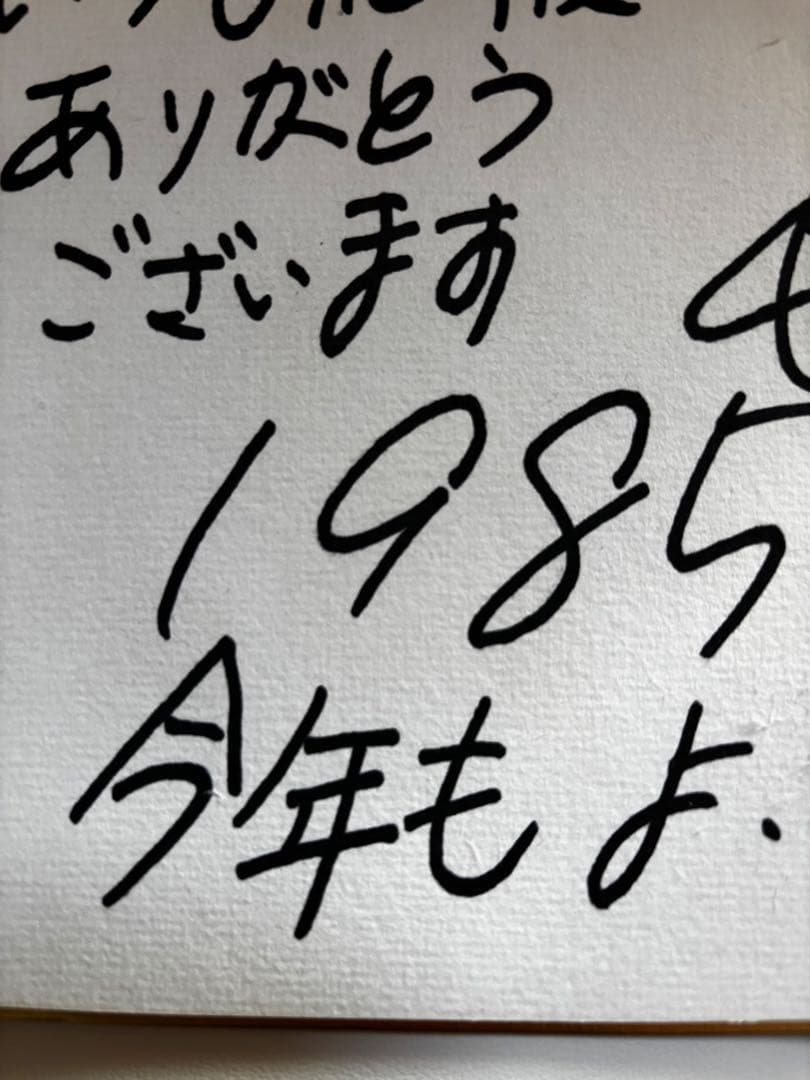 ありがとう
ございます
1985
今年もよ